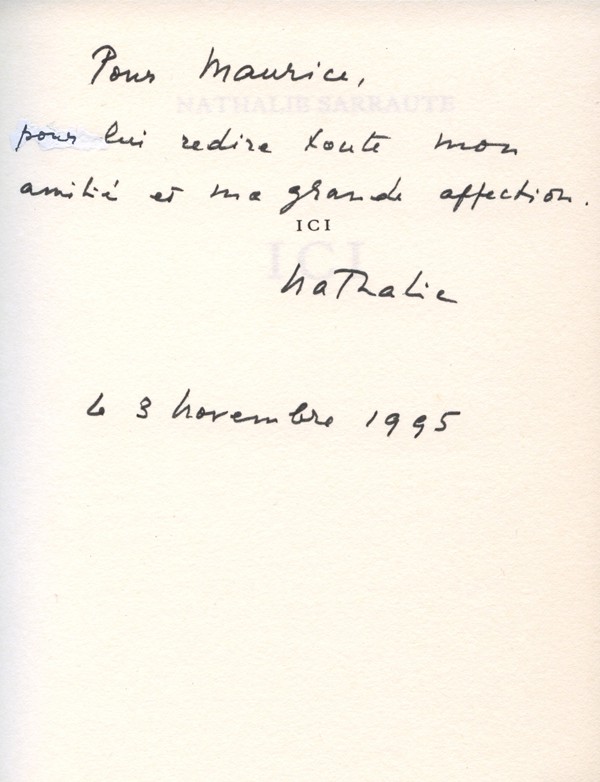 Pour Maurice,
NATHALIE SARRAUTE
pour lui redire toute mon
amitié et ma grande affection.
ICI
ICI
Nathalie
le 3 novembre 1995